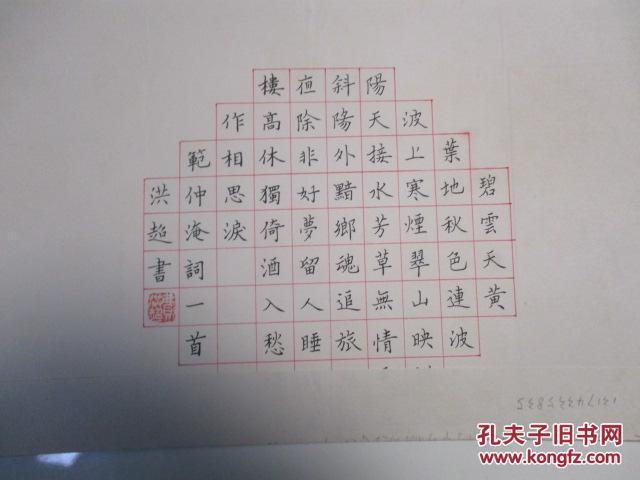 碧雲天黃
葉地秋色連波
波上寒煙翠山映
陽天接水芳草無情
斜陽外黯鄉魂追旅
亱除非好夢留人睡
樓高休獨倚酒入愁
作相思淚
範仲淹詞一首
洪超書
孔夫子旧书网
www.kongfz.com